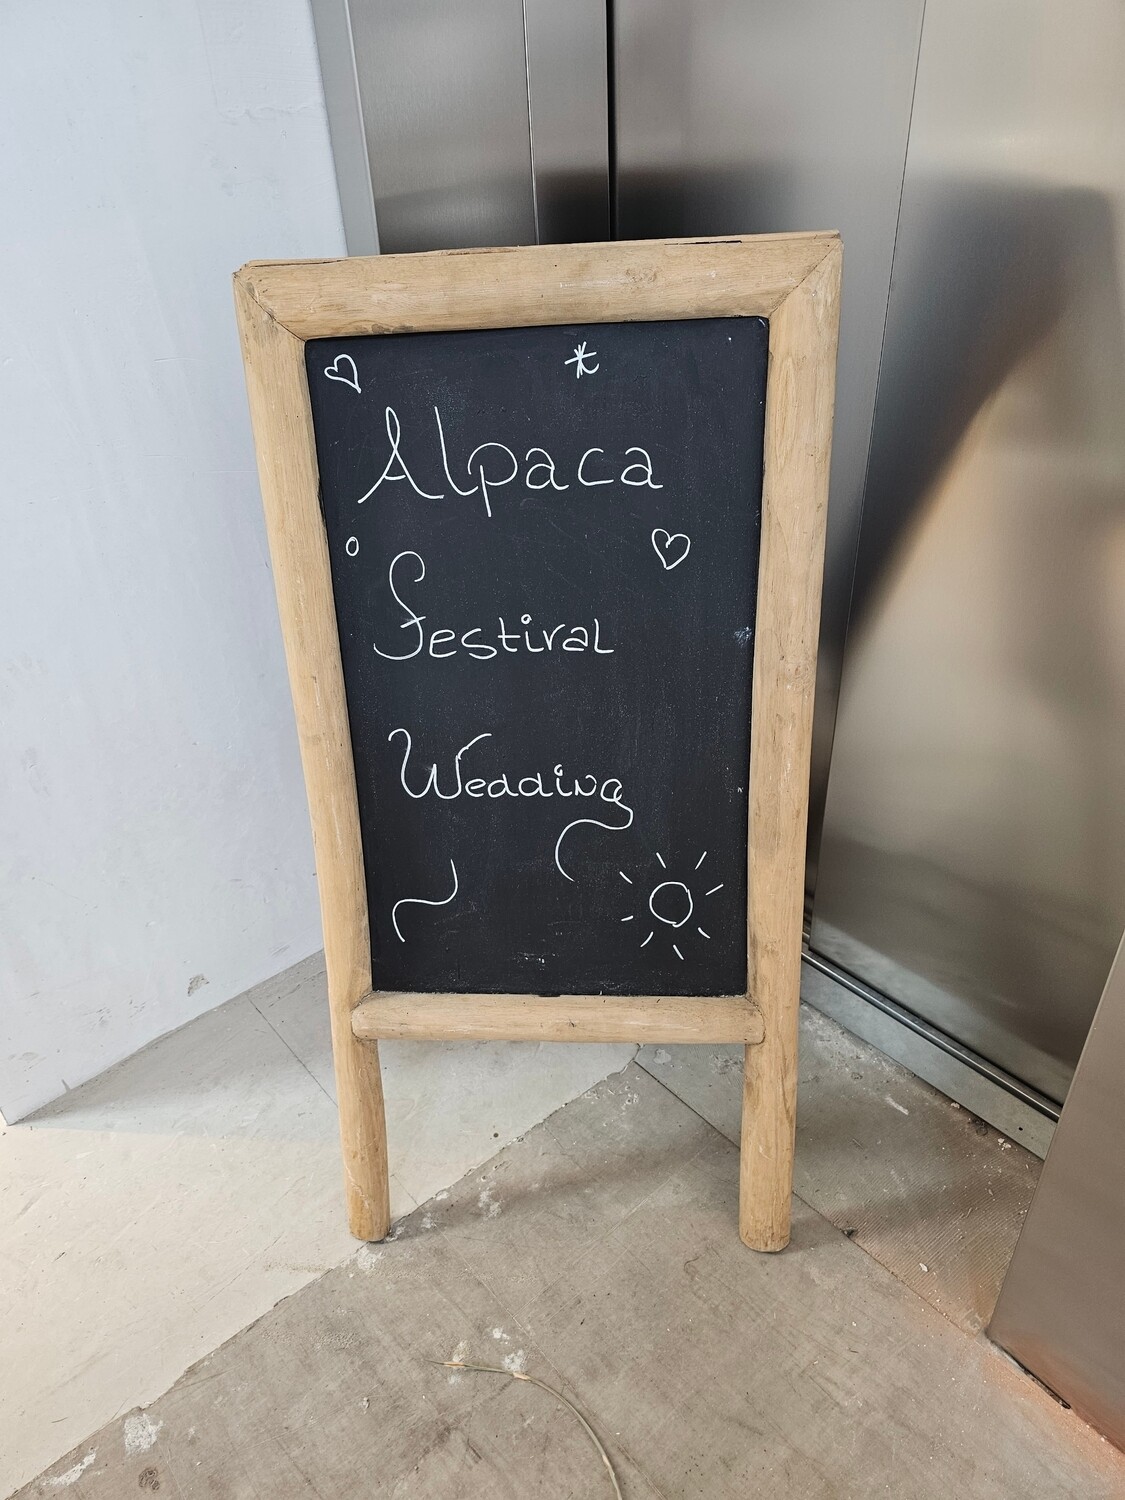 Alpaca
Festival
Wedding